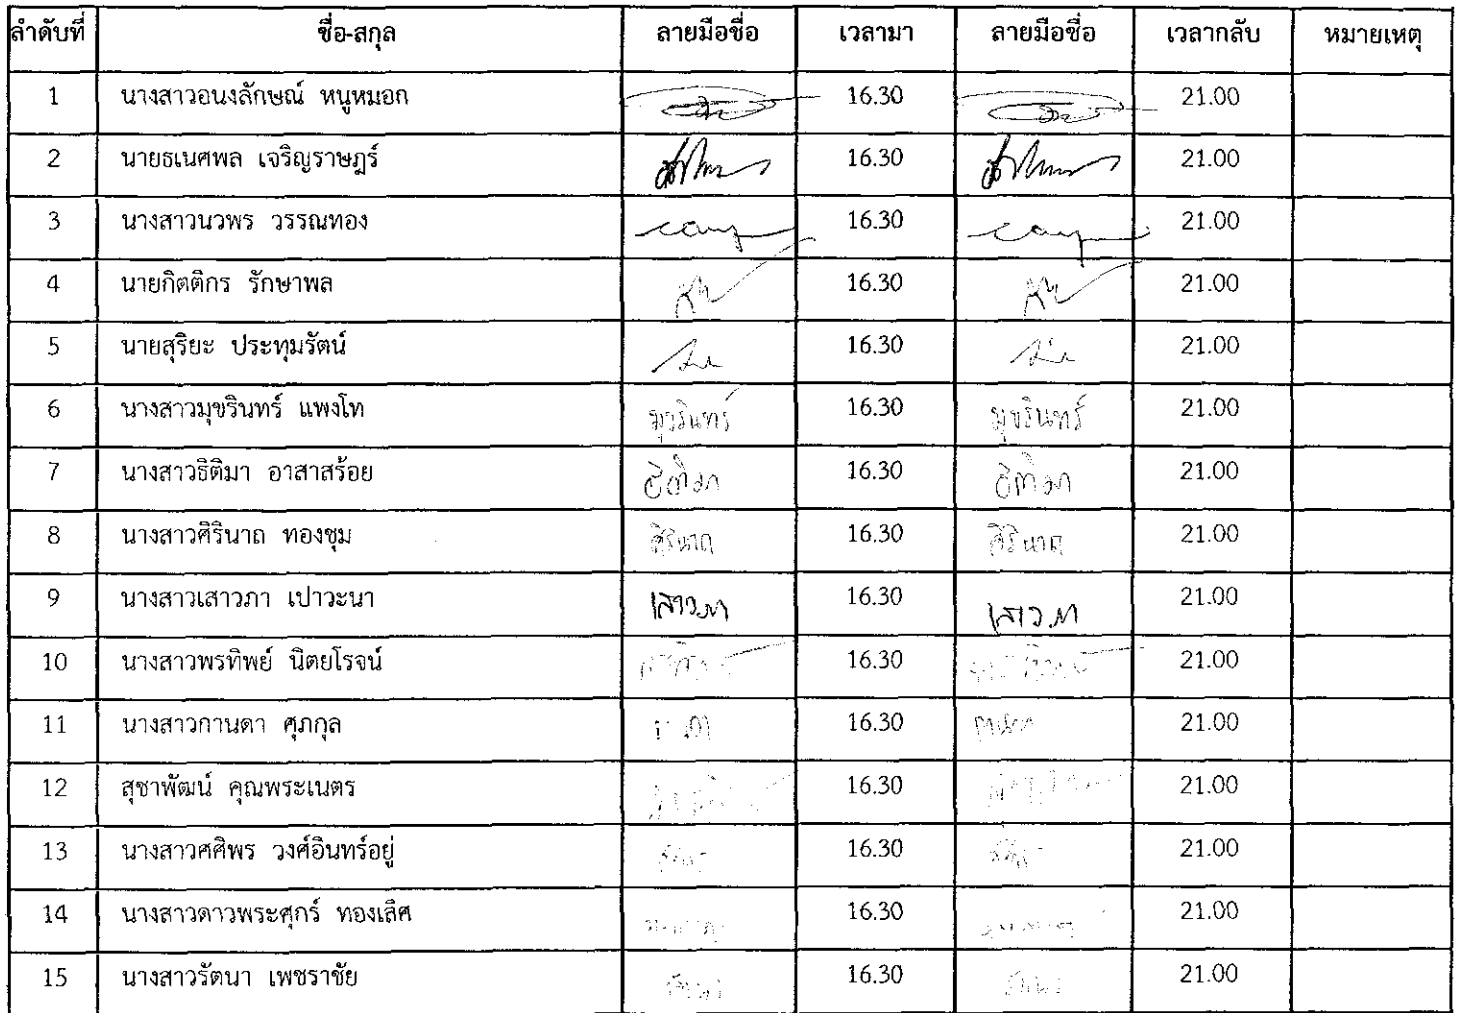 ลำดับที่ ชื่อ-สกุล ลายมือชื่อ เวลามา ลายมือชื่อ เวลากลับ หมายเหตุ
1 นางสาวอนงลักษณ์ หนูหมอก 16.30 21.00
2 นายธเนศพล เจริญราษฎร์ 16.30 21.00
3 นางสาวนวพร วรรณทอง 16.30 21.00
4 นายกิตติกร รักษาพล 16.30 21.00
5 นายสุริยะ ประทุมรัตน์ 16.30 21.00
6 นางสาวมุขรินทร์ แพงโท มุขรินทร์ 16.30 มุขรินทร์ 21.00
7 นางสาวธิติมา อาสาสร้อย ธิติมา 16.30 ธิติมา 21.00
8 นางสาวศิรินาถ ทองชุม ศิรินาถ 16.30 ศิรินาถ 21.00
9 นางสาวเสาวภา เปาวะนา เสาวภา 16.30 เสาวภา 21.00
10 นางสาวพรทิพย์ นิตยโรจน์ 16.30 21.00
11 นางสาวกานดา ศุภกุล 16.30 21.00
12 สุชาพัฒน์ คุณพระเนตร 16.30 21.00
13 นางสาวศศิพร วงศ์อินทร์อยู่ 16.30 21.00
14 นางสาวดาวพระศุกร์ ทองเลิศ 16.30 21.00
15 นางสาวรัตนา เพชราชัย 16.30 21.00